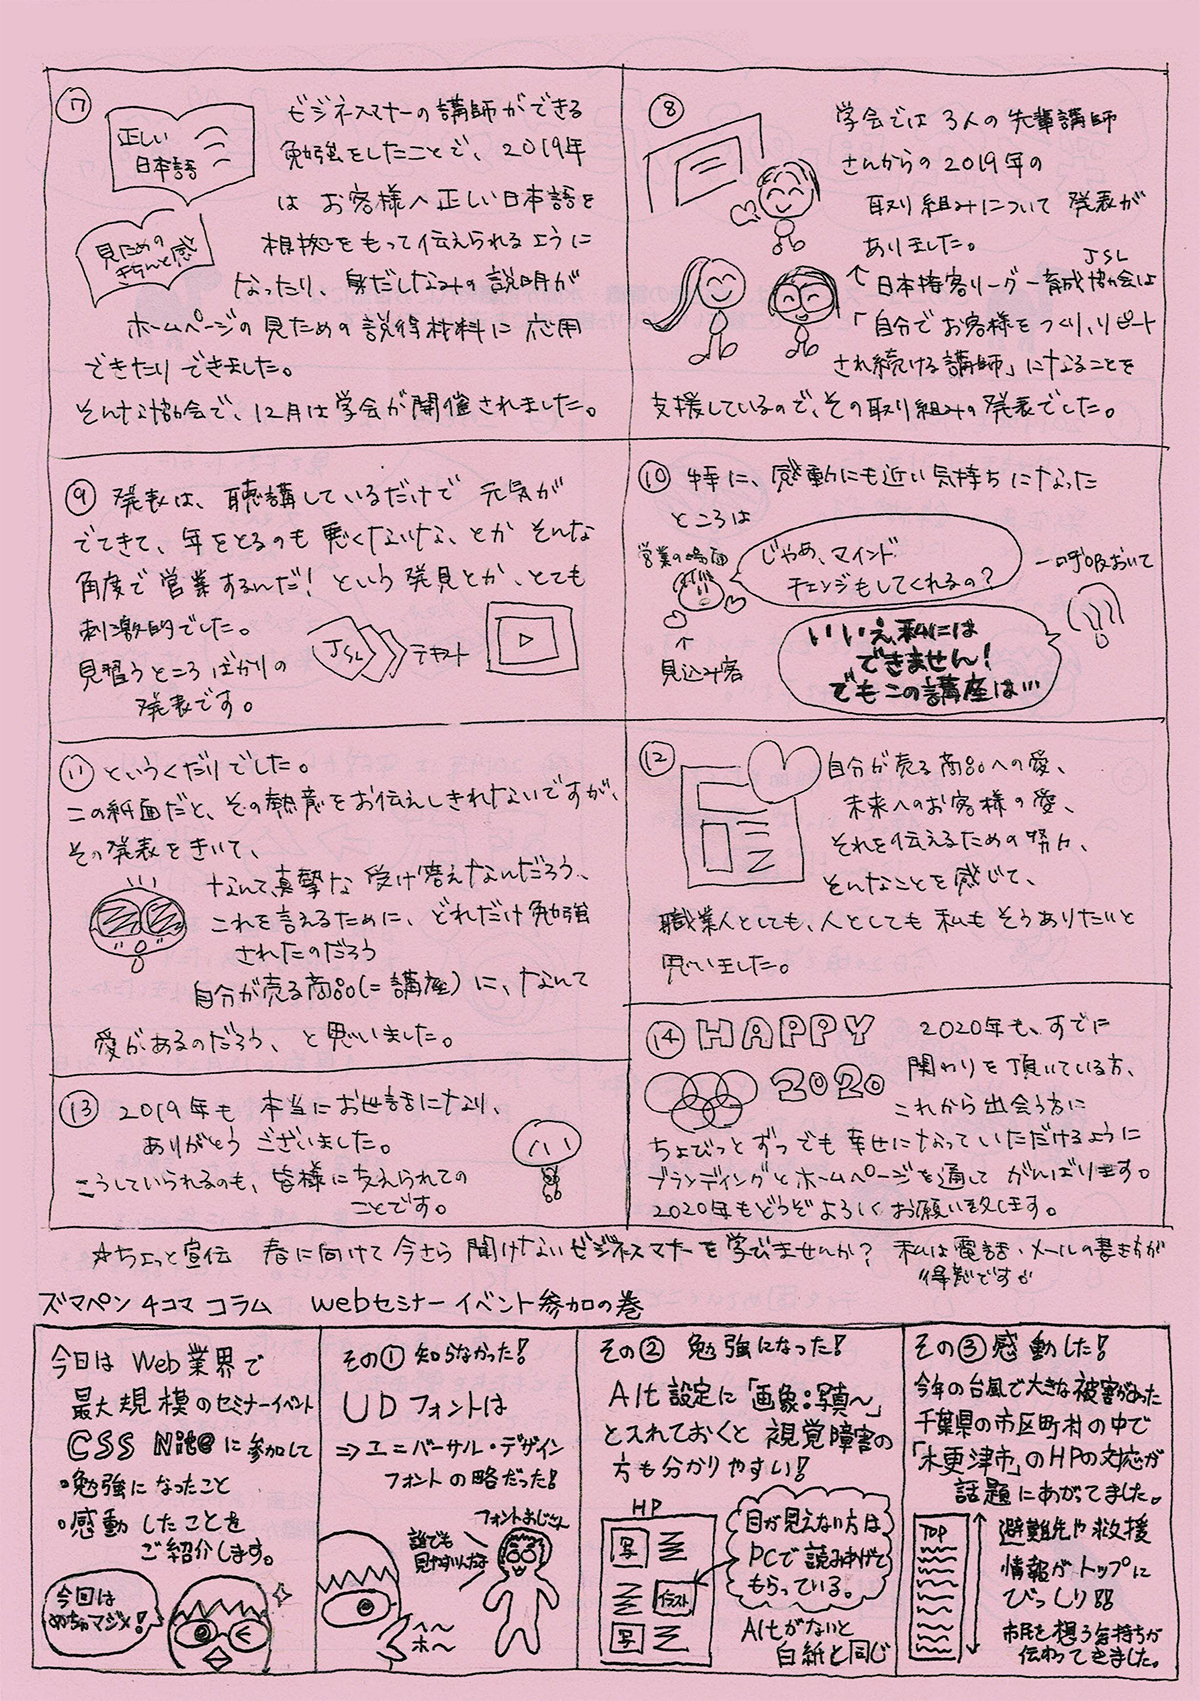 ⑦
正しい
日本語
見ための
きちんと感
ビジネスマナーの講師ができる
勉強をしたことで、2019年
は お客様へ正しい日本語を
根拠をもって伝えられるように
なったり、身だしなみの説明が
ホームページの見ための説得材料に応用
できたりできました。
そんな協会で、12月は学会が開催されました。
⑧
学会では3人の先輩講師
さんからの2019年の
取り組みについて発表が
ありました。
JSL
↑日本接客リーダー育成協会は
「自分でお客様をつくり、リピート
され続ける講師」になることを
支援しているので、その取り組みの発表でした。
⑨ 発表は、聴講しているだけで元気が
でてきて、年をとるのも悪くないな、とか そんな
角度で営業するんだ! という発見とか、とても
刺激的でした。
見習うところばかりの
発表です。
JSL
テキスト
⑩ 特に、感動にも近い気持ちになった
ところは
営業の場面
じゃあ、マインド
チェンジもしてくれるの?
一呼吸おいて
↑
見込み客
いいえ私には
できません!
でもこの講座は…
⑪ というくだりでした。
この紙面だと、その熱意をお伝えしきれないですが、
その発表をきいて、
なんて真摯な受け答えなんだろう、
これを言えるために、どれだけ勉強
されたのだろう
自分が売る商品(=講座)に、なんて
愛があるのだろう、と思いました。
⑫
自分が売る商品への愛、
未来へのお客様の愛、
それを伝えるための努力、
そんなことを感じて、
職業人としても、人としても私もそうありたいと
思いました。
⑬ 2019年も本当にお世話になり、
ありがとうございました。
こうしていられるのも、皆様に支えられての
ことです。
⑭ HAPPY
2020
2020年も、すでに
関わりを頂いている方、
これから出会う方に
ちょびっとずつでも幸せになっていただけるように
ブランディングとホームページを通してがんばります。
2020年もどうぞよろしくお願い致します。
☆ちょっと宣伝 春に向けて今さら聞けないビジネスマナーを学びませんか? 私は電話・メールの書き方が
得意ですが
ズマペン4コマコラム webセミナーイベント参加の巻
今日はWeb業界で
最大規模のセミナーイベント
CSS Niteに参加して
・勉強になったこと
・感動したことを
ご紹介します。
今回は
めちゃマジメ!
その① 知らなかった!
UDフォントは
⇒ユニバーサル・デザイン
フォントの略だった!
フォントおじさん
誰でも
見やすいんだよ
へ〜
ホ〜
その② 勉強になった!
Alt設定に「画象:写真〜」
と入れておくと視覚障害の
方も分かりやすい!
HP
写
イラスト
写
目が見えない方は
PCで読みあげて
もらっている。
Altがないと
白紙と同じ
その③ 感動した!
今年の台風で大きな被害があった
千葉県の市区町村の中で
「木更津市」のHPの対応が
話題にあがってました。
TOP
避難先や救援
情報がトップに
びっしり!!
市民を想う気持ちが
伝わってきました。